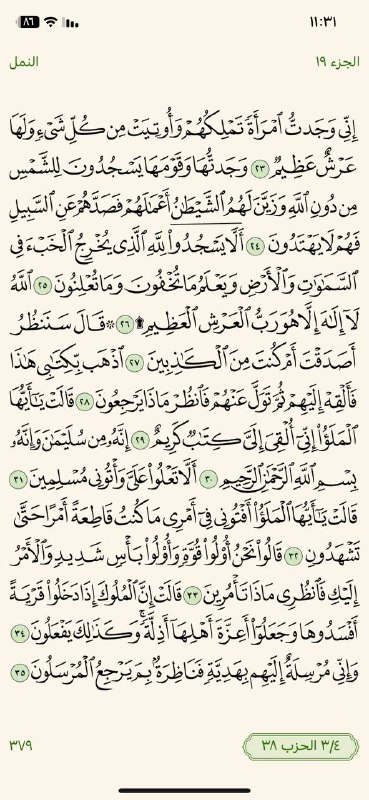 ١١:٣١
٨٦
الجزء ١٩
النمل
إِنِّى وَجَدتُّ ٱمْرَأَةً تَمْلِكُهُمْ وَأُوتِيَتْ مِن كُلِّ شَىْءٍ وَلَهَا
عَرْشٌ عَظِيمٌ ٢٣ وَجَدتُّهَا وَقَوْمَهَا يَسْجُدُونَ لِلشَّمْسِ
مِن دُونِ ٱللَّهِ وَزَيَّنَ لَهُمُ ٱلشَّيْطَٰنُ أَعْمَٰلَهُمْ فَصَدَّهُمْ عَنِ ٱلسَّبِيلِ
فَهُمْ لَا يَهْتَدُونَ ٢٤ أَلَّا يَسْجُدُوا۟ لِلَّهِ ٱلَّذِى يُخْرِجُ ٱلْخَبْءَ فِى
ٱلسَّمَٰوَٰتِ وَٱلْأَرْضِ وَيَعْلَمُ مَا تُخْفُونَ وَمَا تُعْلِنُونَ ٢٥ ٱللَّهُ
لَآ إِلَٰهَ إِلَّا هُوَ رَبُّ ٱلْعَرْشِ ٱلْعَظِيمِ ۩ ٢٦ ۞ قَالَ سَنَنظُرُ
أَصَدَقْتَ أَمْ كُنتَ مِنَ ٱلْكَٰذِبِينَ ٢٧ ٱذْهَب بِّكِتَٰبِى هَٰذَا
فَأَلْقِهْ إِلَيْهِمْ ثُمَّ تَوَلَّ عَنْهُمْ فَٱنظُرْ مَاذَا يَرْجِعُونَ ٢٨ قَالَتْ يَٰٓأَيُّهَا
ٱلْمَلَؤُا۟ إِنِّىٓ أُلْقِىَ إِلَىَّ كِتَٰبٌ كَرِيمٌ ٢٩ إِنَّهُۥ مِن سُلَيْمَٰنَ وَإِنَّهُۥ
بِسْمِ ٱللَّهِ ٱلرَّحْمَٰنِ ٱلرَّحِيمِ ٣٠ أَلَّا تَعْلُوا۟ عَلَىَّ وَأْتُونِى مُسْلِمِينَ ٣١
قَالَتْ يَٰٓأَيُّهَا ٱلْمَلَؤُا۟ أَفْتُونِى فِىٓ أَمْرِى مَا كُنتُ قَاطِعَةً أَمْرًا حَتَّىٰ
تَشْهَدُونِ ٣٢ قَالُوا۟ نَحْنُ أُو۟لُوا۟ قُوَّةٍ وَأُو۟لُوا۟ بَأْسٍ شَدِيدٍ وَٱلْأَمْرُ
إِلَيْكِ فَٱنظُرِى مَاذَا تَأْمُرِينَ ٣٣ قَالَتْ إِنَّ ٱلْمُلُوكَ إِذَا دَخَلُوا۟ قَرْيَةً
أَفْسَدُوهَا وَجَعَلُوٓا۟ أَعِزَّةَ أَهْلِهَآ أَذِلَّةً ۖ وَكَذَٰلِكَ يَفْعَلُونَ ٣٤
وَإِنِّى مُرْسِلَةٌ إِلَيْهِم بِهَدِيَّةٍ فَنَاظِرَةٌۢ بِمَ يَرْجِعُ ٱلْمُرْسَلُونَ ٣٥
٣/٤ الحزب ٣٨
٣٧٩